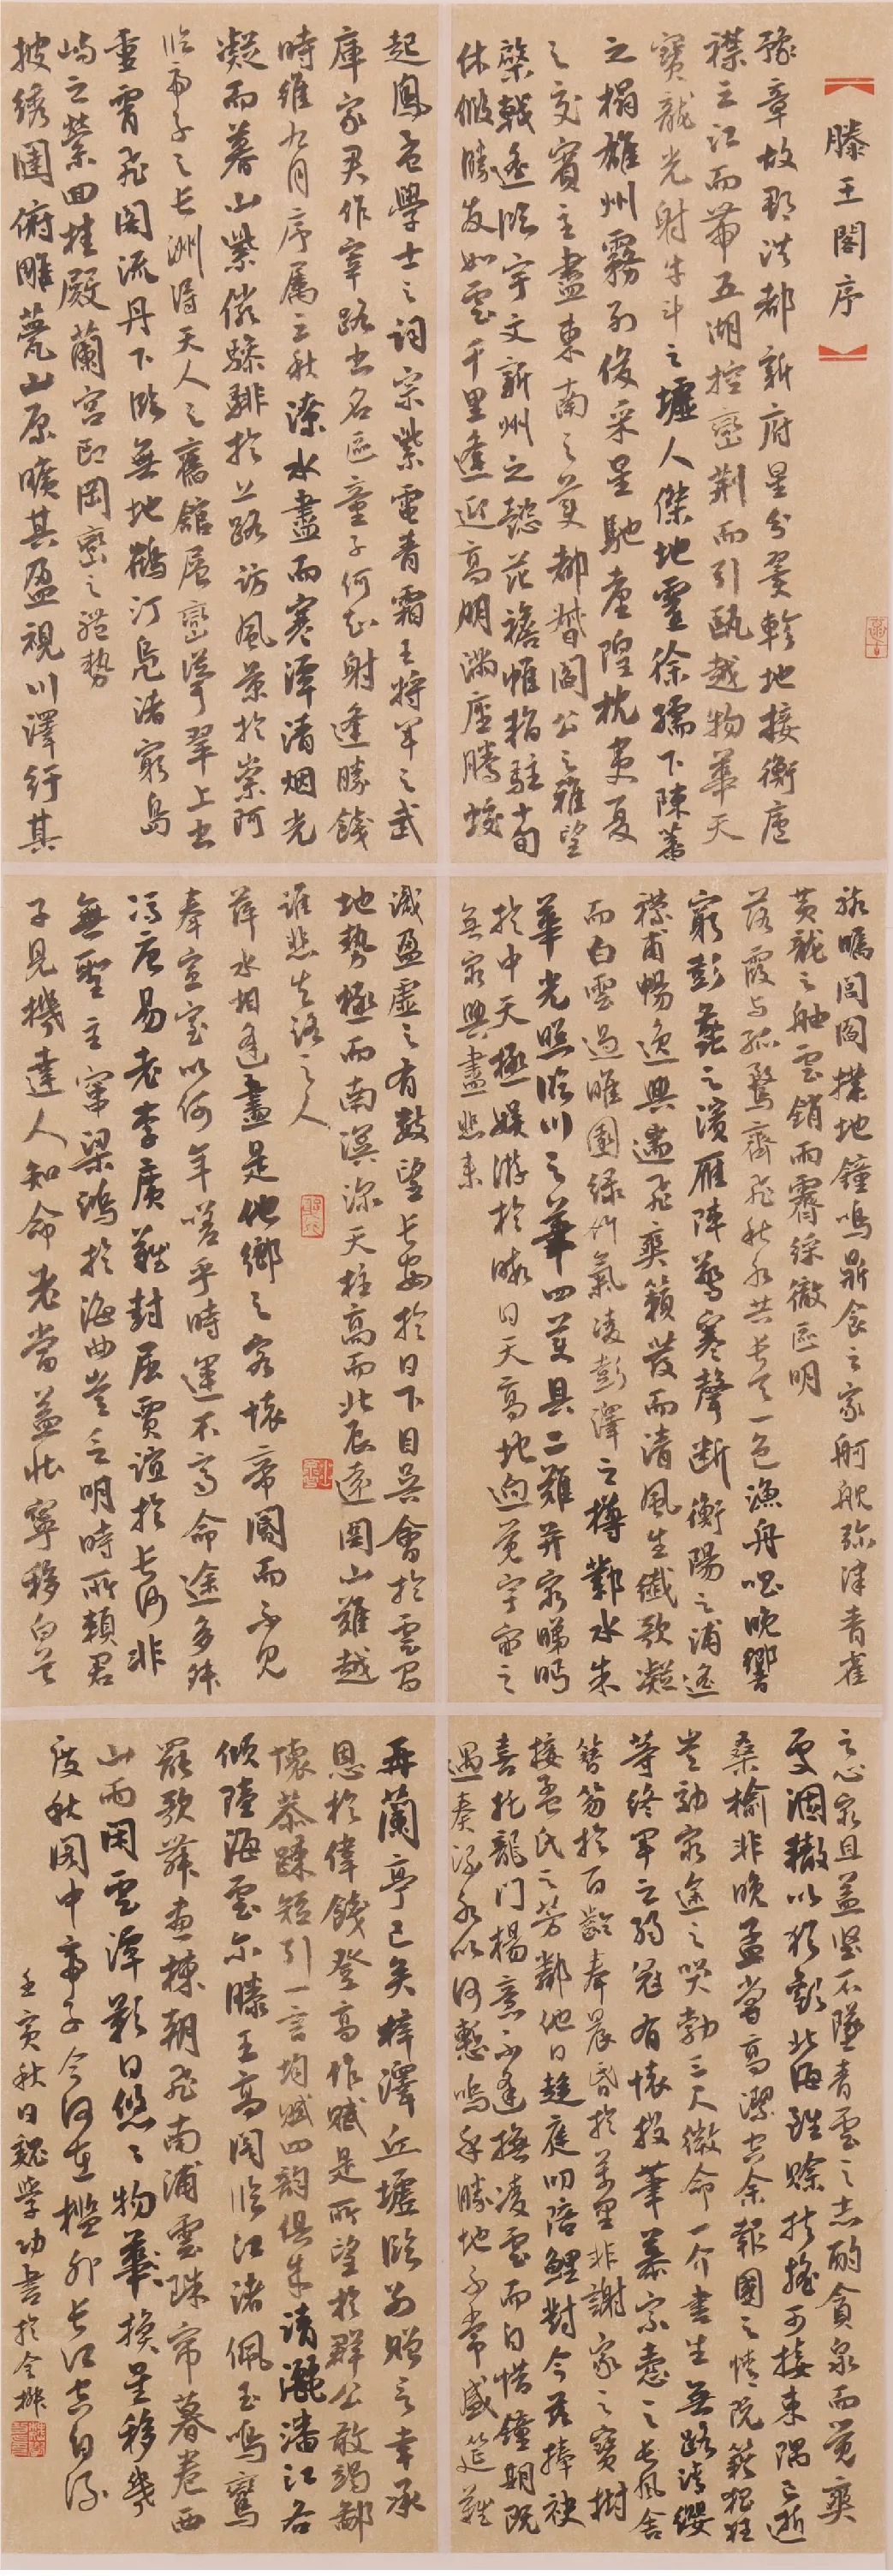 滕王閣序
豫章故郡洪都新府星分翼軫地接衡廬
襟三江而帶五湖控蠻荊而引甌越物華天
寶龍光射牛斗之墟人傑地靈徐孺下陳蕃
之榻雄州霧列俊采星馳臺隍枕夷夏
之交賓主盡東南之美都督閻公之雅望
棨戟遙臨宇文新州之懿範襜帷暫駐十旬
休假勝友如雲千里逢迎高朋滿座騰蛟
起鳳孟學士之詞宗紫電青霜王將軍之武
庫家君作宰路出名區童子何知躬逢勝餞
時維九月序屬三秋潦水盡而寒潭清烟光
凝而暮山紫儼驂騑於上路訪風景於崇阿
臨帝子之長洲得天人之舊館層巒聳翠上出
重霄飛閣流丹下臨無地鶴汀鳧渚窮島
嶼之縈回桂殿蘭宮即岡巒之體勢
披绣闥俯雕甍山原曠其盈視川澤紆其
駭矚閭閻撲地鐘鳴鼎食之家舸舰弥津青雀
黃龍之舳雲銷雨霽綵徹區明
落霞与孤鶩齊飛秋水共長天一色漁舟唱晚響
窮彭蠡之濱雁陣驚寒聲斷衡陽之浦遙
襟甫暢逸興遄飛爽籟發而清風生纖歌凝
而白雲遏睢園绿竹氣凌彭澤之樽鄴水朱
華光照臨川之筆四美具二難并窮睇眄
於中天極娛游於暇日天高地迥覺宇宙之
無窮興盡悲来
識盈虛之有數望長安於日下目吳會於雲間
地勢極而南溟深天柱高而北辰遠關山難越
誰悲失路之人
萍水相逢盡是他鄉之客懷帝閽而不見
奉宣室以何年嗟乎時運不齊命途多舛
馮唐易老李廣難封屈賈誼於長沙非
無聖主竄梁鴻於海曲豈乏明時所賴君
子見機達人知命老當益壯寧移白首
之心窮且益坚不墜青雲之志酌貪泉而覺爽
處涸轍以猶歡北海雖賒扶搖可接東隅已逝
桑榆非晚孟嘗高潔空余報國之情阮籍猖狂
豈効窮途之哭勃三尺微命一介書生無路請纓
等終軍之弱冠有懷投筆慕宗愨之長風舍
簪笏於百齡奉晨昏於萬里非謝家之寶樹
接孟氏之芳鄰他日趨庭叨陪鯉對今茲捧袂
喜托龍門楊意不逢撫凌雲而自惜鐘期既
遇奏流水以何慙嗚乎勝地不常盛筵難
再蘭亭已矣梓澤丘墟臨别贈言幸承
恩於偉餞登高作賦是所望於群公敢竭鄙
懷恭疎短引一言均賦四韵俱成請灑潘江各
傾陸海雲尔滕王高閣臨江渚佩玉鳴鸞
罷歌舞画棟朝飛南浦雲珠帘暮卷西
山雨閑雲潭影日悠悠物華換星移幾
度秋閣中帝子今何在檻外長江空自流
壬寅秋日魏學功書於金